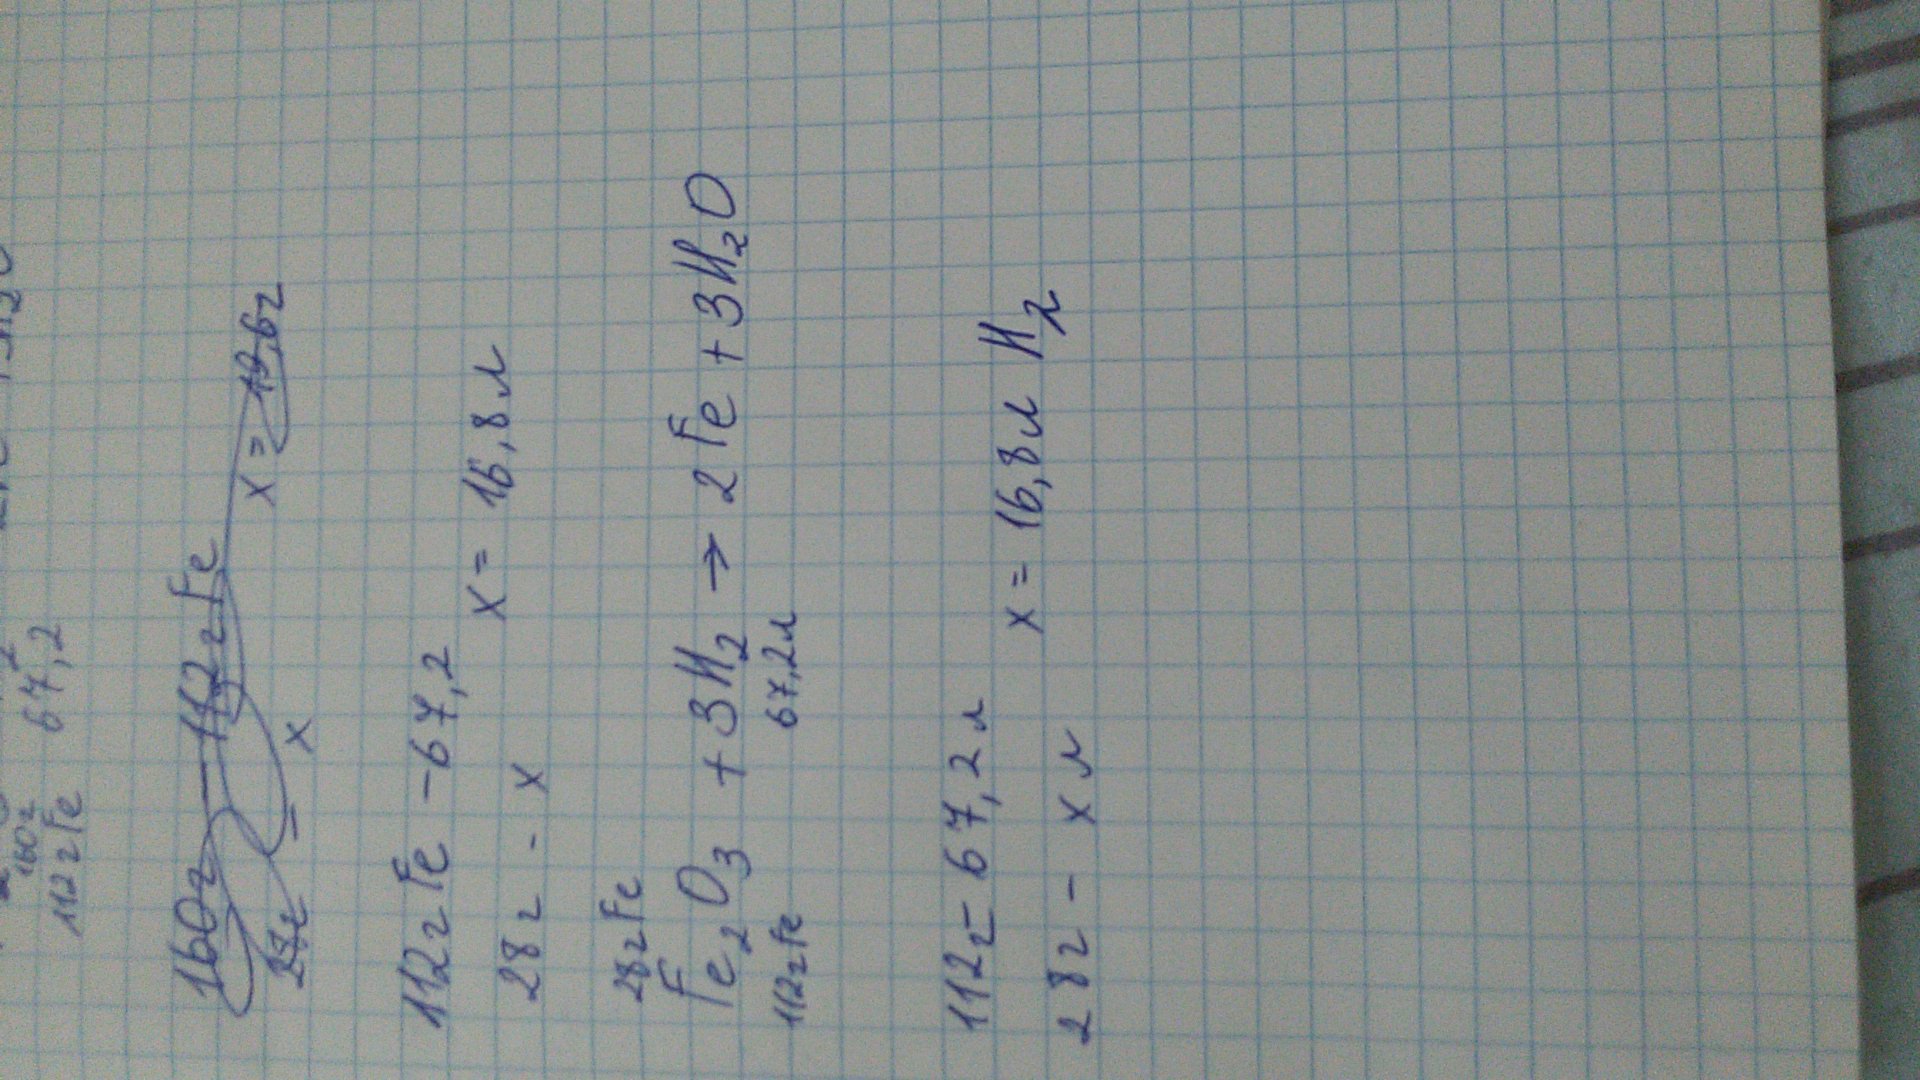 160г
112г Fe 67,2
160г – 112г Fe
28г – x x = 19,6г
112г Fe – 67,2
28г - x x = 16,8л
28г Fe
Fe₂O₃ + 3H₂ → 2Fe + 3H₂O
112г Fe 67,2л
112г – 67,2л
28г – x л x = 16,8л H₂